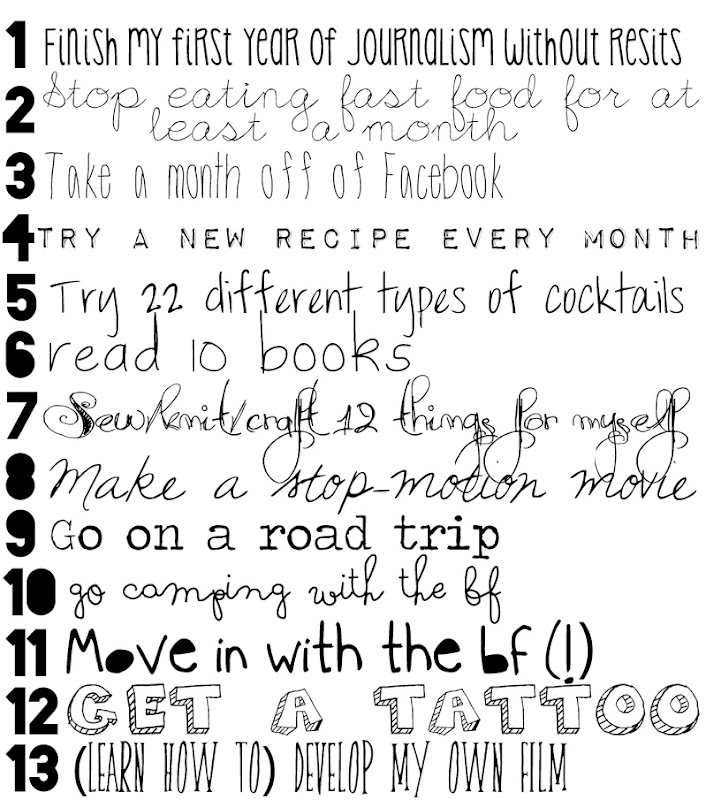 1 Finish my first year of Journalism without resits
2 Stop eating fast food for at
least a month
3 Take a month off of Facebook
4 TRY A NEW RECIPE EVERY MONTH
5 Try 22 different types of cocktails
6 read 10 books
7 Sew/knit/craft 12 things for myself
8 Make a stop-motion movie
9 Go on a road trip
10 go camping with the bf
11 Move in with the bf (!)
12 GET A TATTOO
13 (LEARN HOW TO) DEVELOP MY OWN FILM